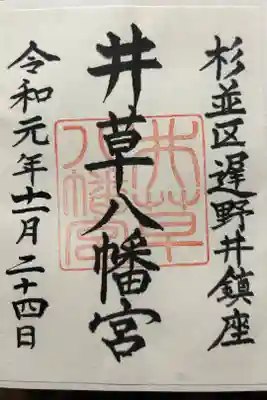 杉並区遅野井鎮座
井草八幡宮
令和元年十一月二十四日
井草八幡宮